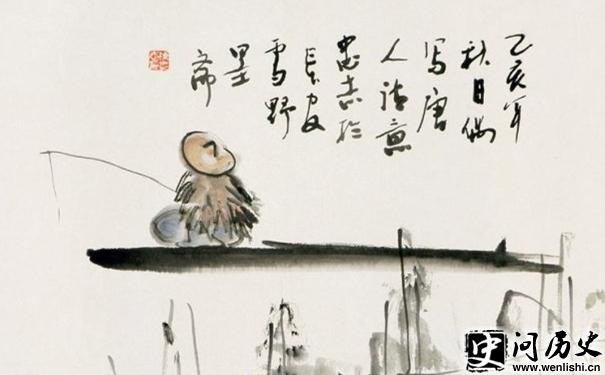 乙亥年
秋日偶
写唐
人诗意
忠志於
长安
雪野
墨
斋
史
问历史
www.wenlishi.cn